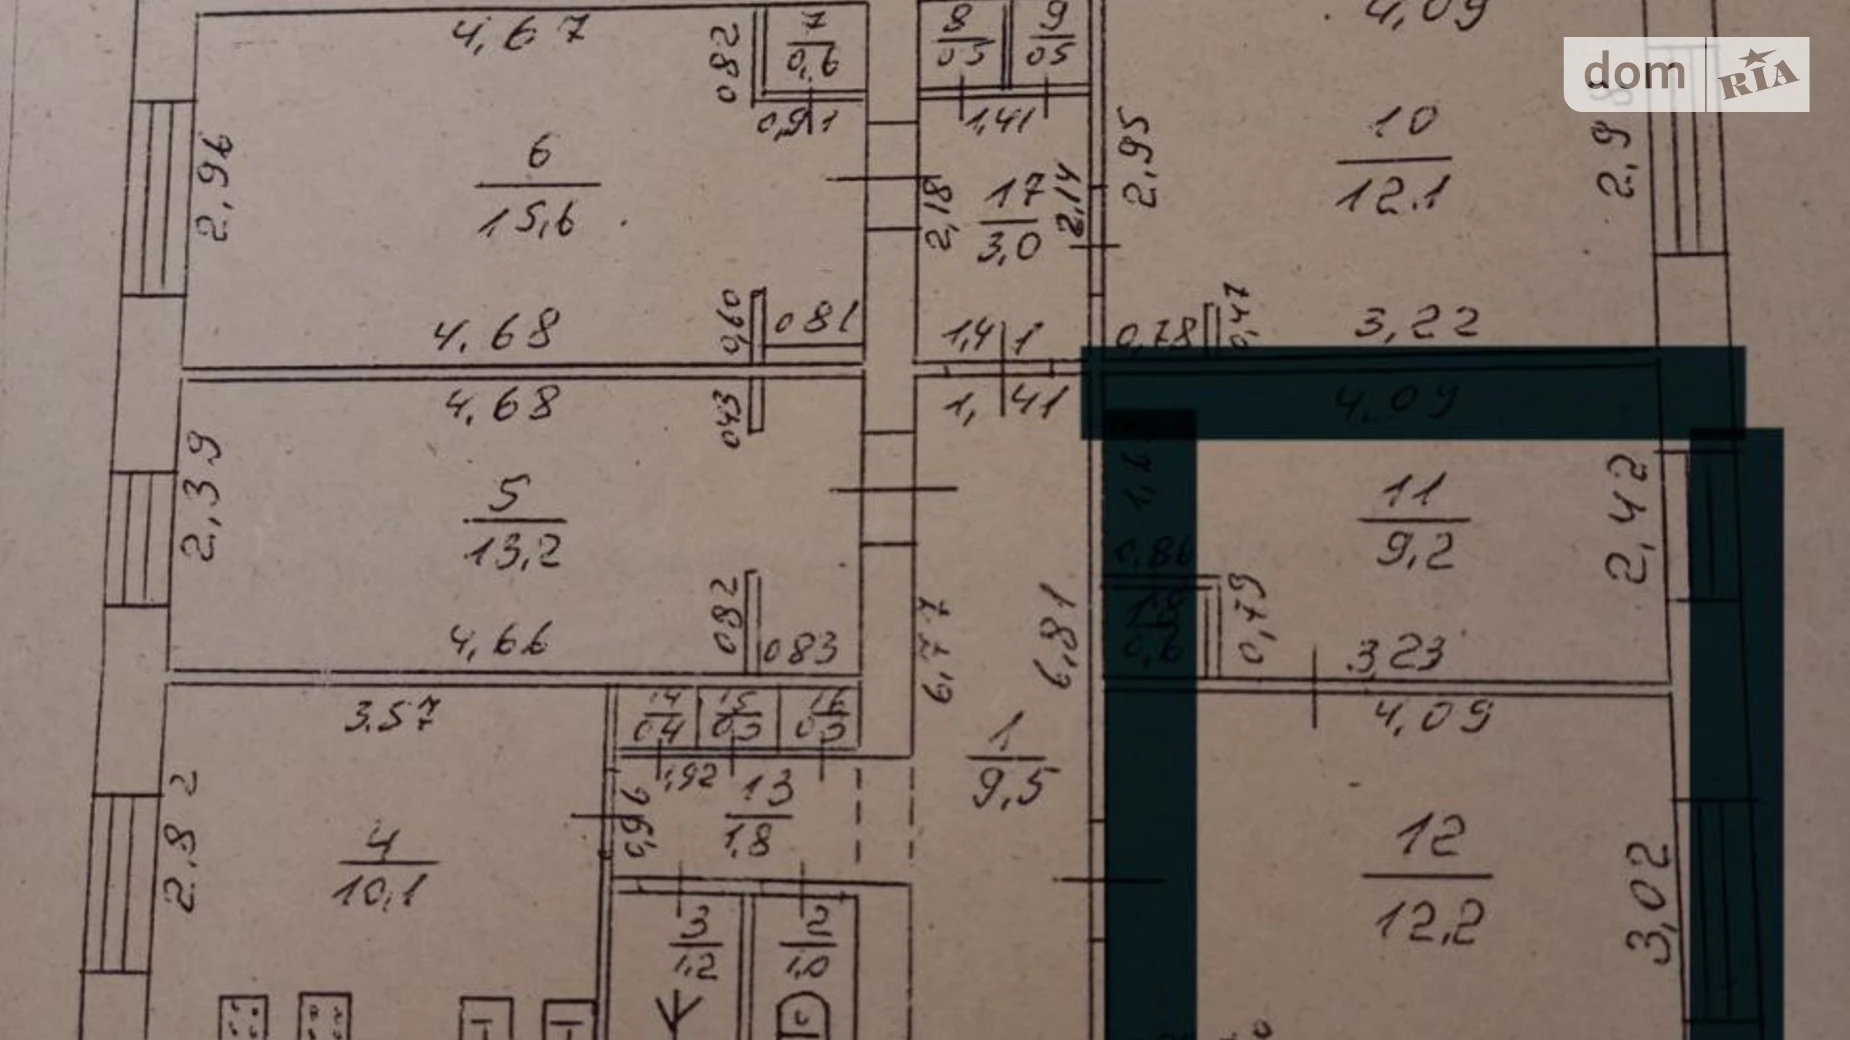 4,67
0,82
7
0,6
0,91
8
0,3
9
0,5
1,41
4,09
dom RIA
2,96
6
15,6
2,18
17
3,0
2,14
2,95
10
12.1
2,9
4,68
0,60
0,81
1,41
0,78
0,47
3,22
4,68
0,43
1,41
4,09
2,39
5
13,2
11
9,2
2,42
0,86
18
0,6
0,79
4,66
0,82
0,83
6,77
6,81
3,23
3.57
14
0,4
15
0,3
16
0,3
4,09
1,92
13
1,8
0,96
1
9,5
2,82
4
10,1
12
12,2
3,02
3
1,2
2
1,0